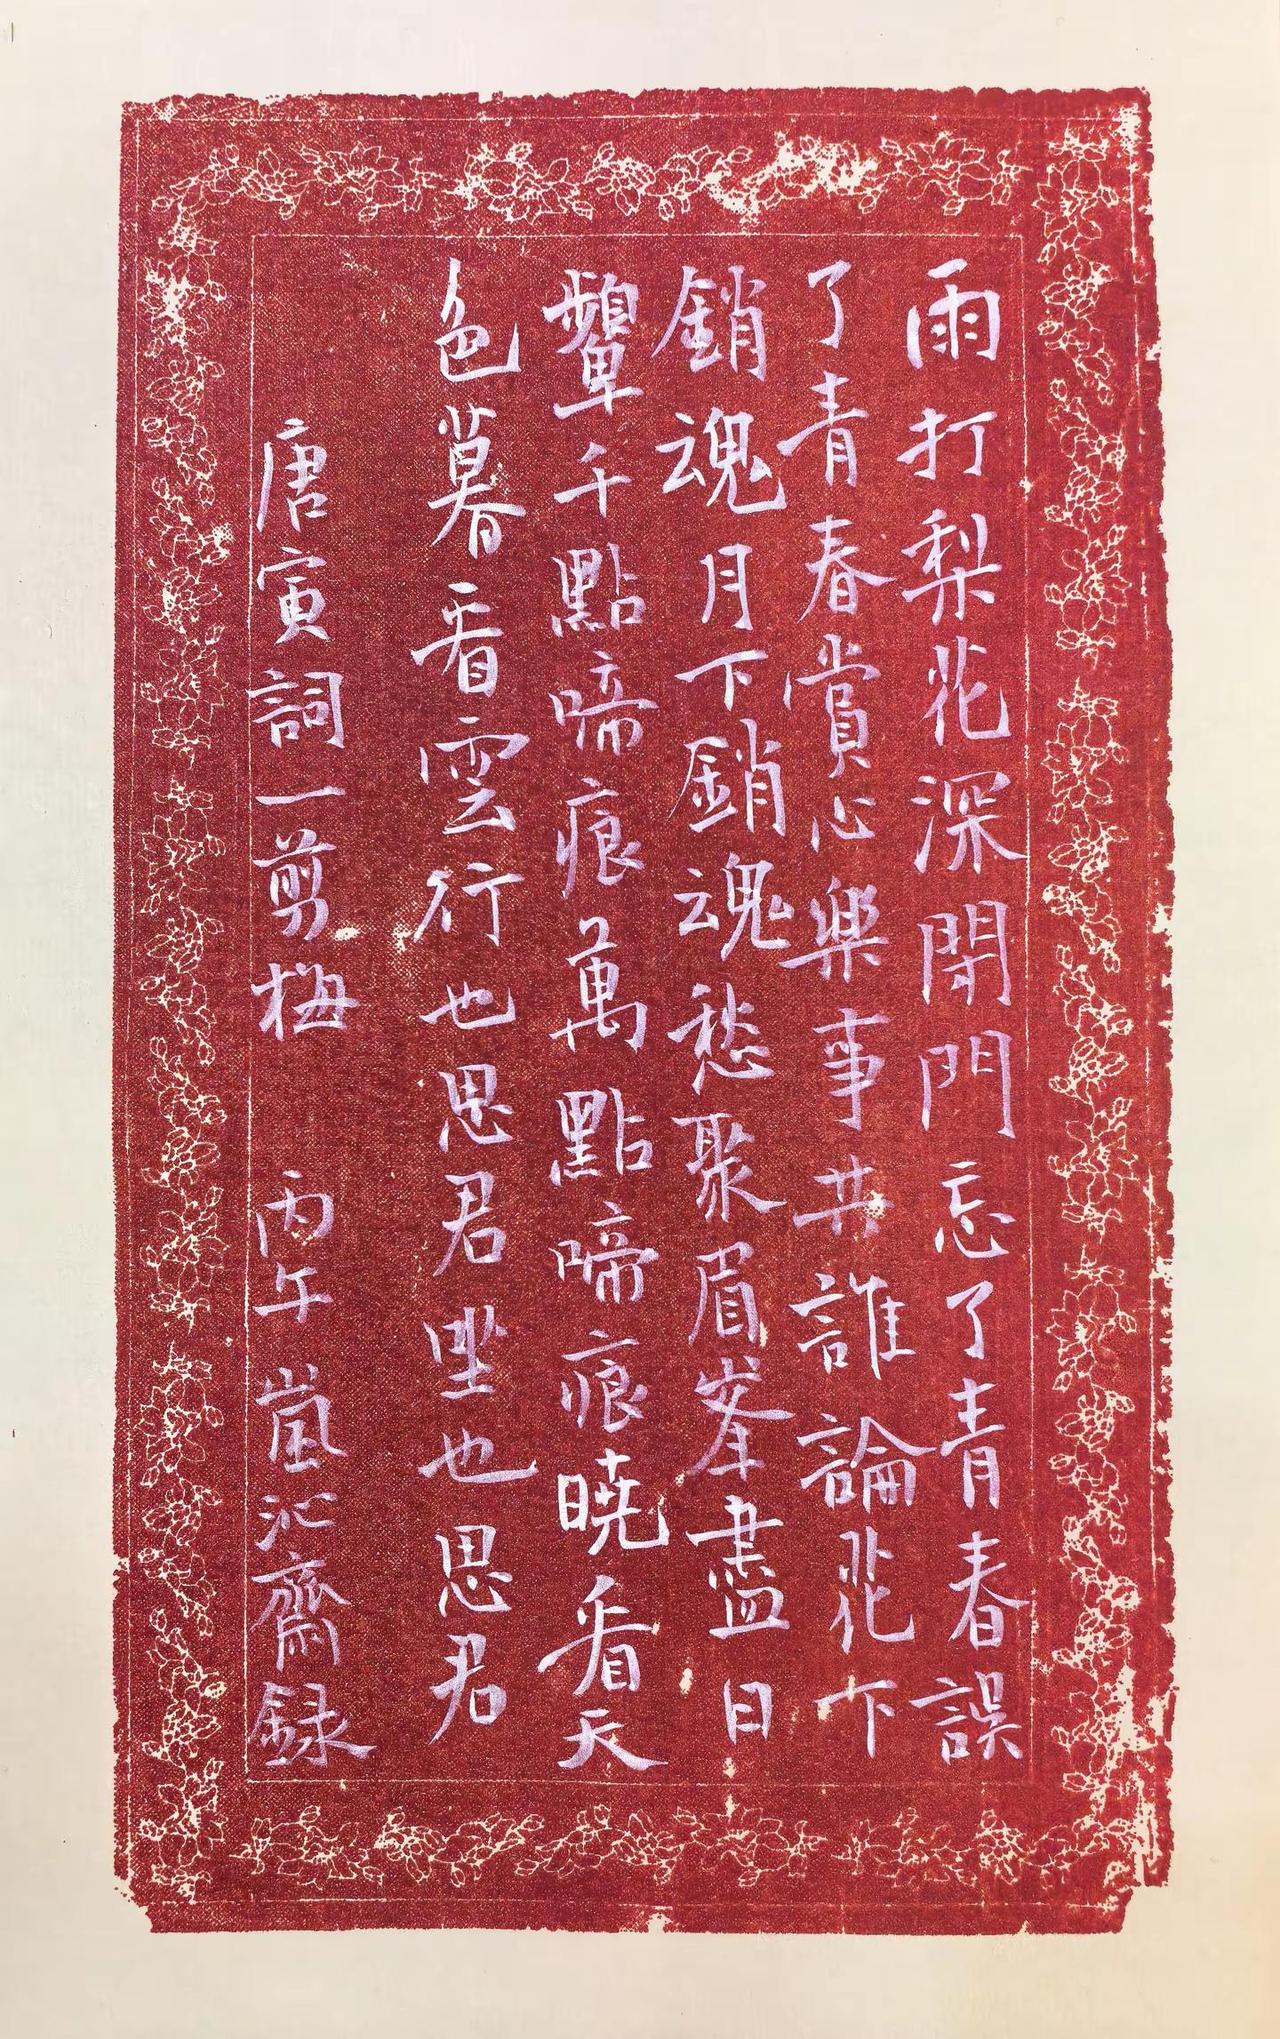 雨打梨花深閉門忘了青春誤
了青春賞心樂事共誰論花下
銷魂月下銷魂愁聚眉峯盡日
顰千點啼痕萬點啼痕曉看天
色暮看雲行也思君坐也思君
唐寅詞一剪梅 丙午嵐沁齋録